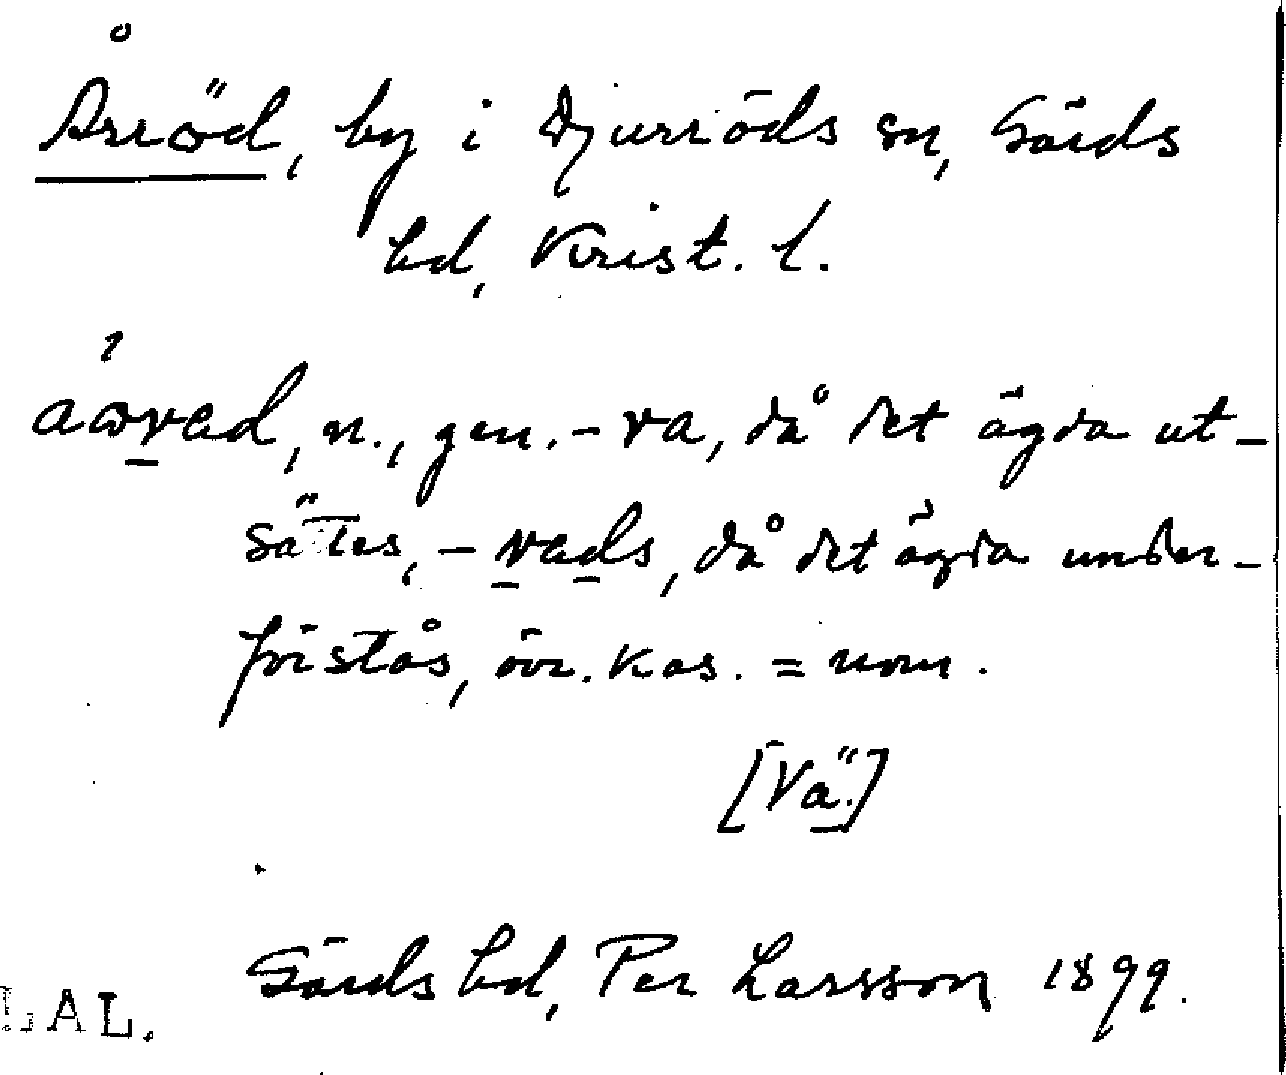 Årröd, by i Djurröds sn, Gärds
hd, Krist. l.
n., gen. -ra, då det ägda ut-
sättes, -rads, då det ägda under-
förstås, övr. kas. = nom.
[Vä.]
Gärds hd, Per Larsson 1899.
LAL.